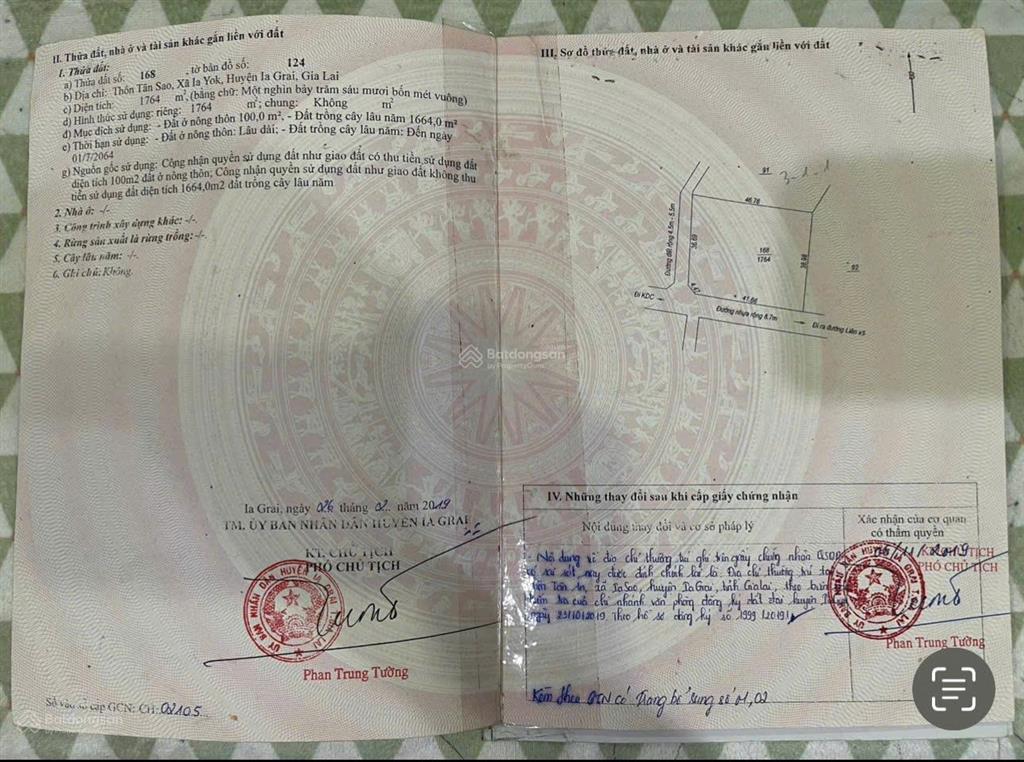 II. Thửa đất, nhà ở và tài sản khác gắn liền với đất
1. Thửa đất:
a) Thửa đất số: 168 , tờ bản đồ số: 124
b) Địa chỉ: Thôn Tân Sao, Xã Ia Yok, Huyện Ia Grai, Gia Lai
c) Diện tích: 1764 m², (bằng chữ: Một nghìn bảy trăm sáu mươi bốn mét vuông)
d) Hình thức sử dụng: riêng: 1764 m²; chung: Không m²
đ) Mục đích sử dụng: - Đất ở nông thôn 100,0 m². - Đất trồng cây lâu năm 1664,0 m²
e) Thời hạn sử dụng: - Đất ở nông thôn: Lâu dài; - Đất trồng cây lâu năm: Đến ngày
01/7/2064
g) Nguồn gốc sử dụng: Công nhận quyền sử dụng đất như giao đất có thu tiền sử dụng đất
diện tích 100m2 đất ở nông thôn; Công nhận quyền sử dụng đất như giao đất không thu
tiền sử dụng đất diện tích 1664,0m2 đất trồng cây lâu năm
2. Nhà ở: -/-
3. Công trình xây dựng khác: -/-
4. Rừng sản xuất là rừng trồng: -/-
5. Cây lâu năm: -/-
6. Ghi chú: Không.
Ia Grai, ngày 026 tháng 02 năm 2019
TM. ỦY BAN NHÂN DÂN HUYỆN IA GRAI
KT. CHỦ TỊCH
PHÓ CHỦ TỊCH
Phan Trung Tường
Số vào sổ cấp GCN: CH 02105
III. Sơ đồ thửa đất, nhà ở và tài sản khác gắn liền với đất
B
91
3-1-1
46.78
Đường đất rộng 4.5m - 5.5m
36.69
168
1764
38.98
92
4.47
41.66
Đi KDC
Đường nhựa rộng 8.7m
Đi ra đường Liên xã
IV. Những thay đổi sau khi cấp giấy chứng nhận
Nội dung thay đổi và cơ sở pháp lý
Xác nhận của cơ quan
có thẩm quyền
Nội dung về địa chỉ thường trú ghi trên giấy chứng nhận QSDĐ
có sai sót, nay được đính chính lại là: Địa chỉ thường trú tại
Tân An, xã Ia Sao, huyện Ia Grai, tỉnh Gia Lai, theo
của chi nhánh văn phòng đăng ký đất đai huyện
ngày 23/10/2019 Theo hồ sơ đăng ký số 1999 (2019)
/11/2019
KT. CHỦ TỊCH
PHÓ CHỦ TỊCH
Phan Trung Tường
Kèm theo GCN có Trang bổ sung số 01, 02
Batdongsan
by PropertyGuru
Batdongsan
by PropertyGuru
Batdongsan